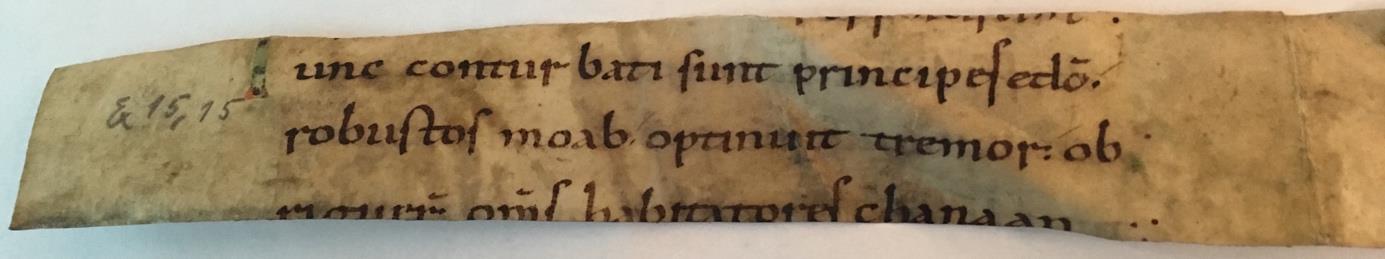 unc contur bati sunt principes edō.
Ex 15,15
robustos moab optinuit tremor: ob
rigueř om̄s habitatores chanaan